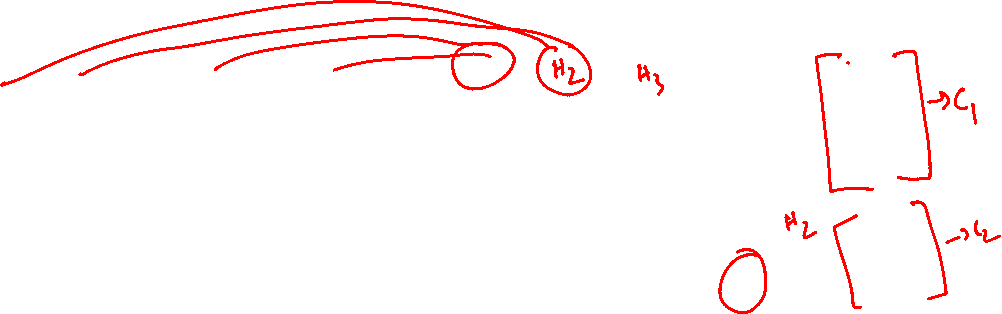 H2 H3
→ C1
H2 → C2